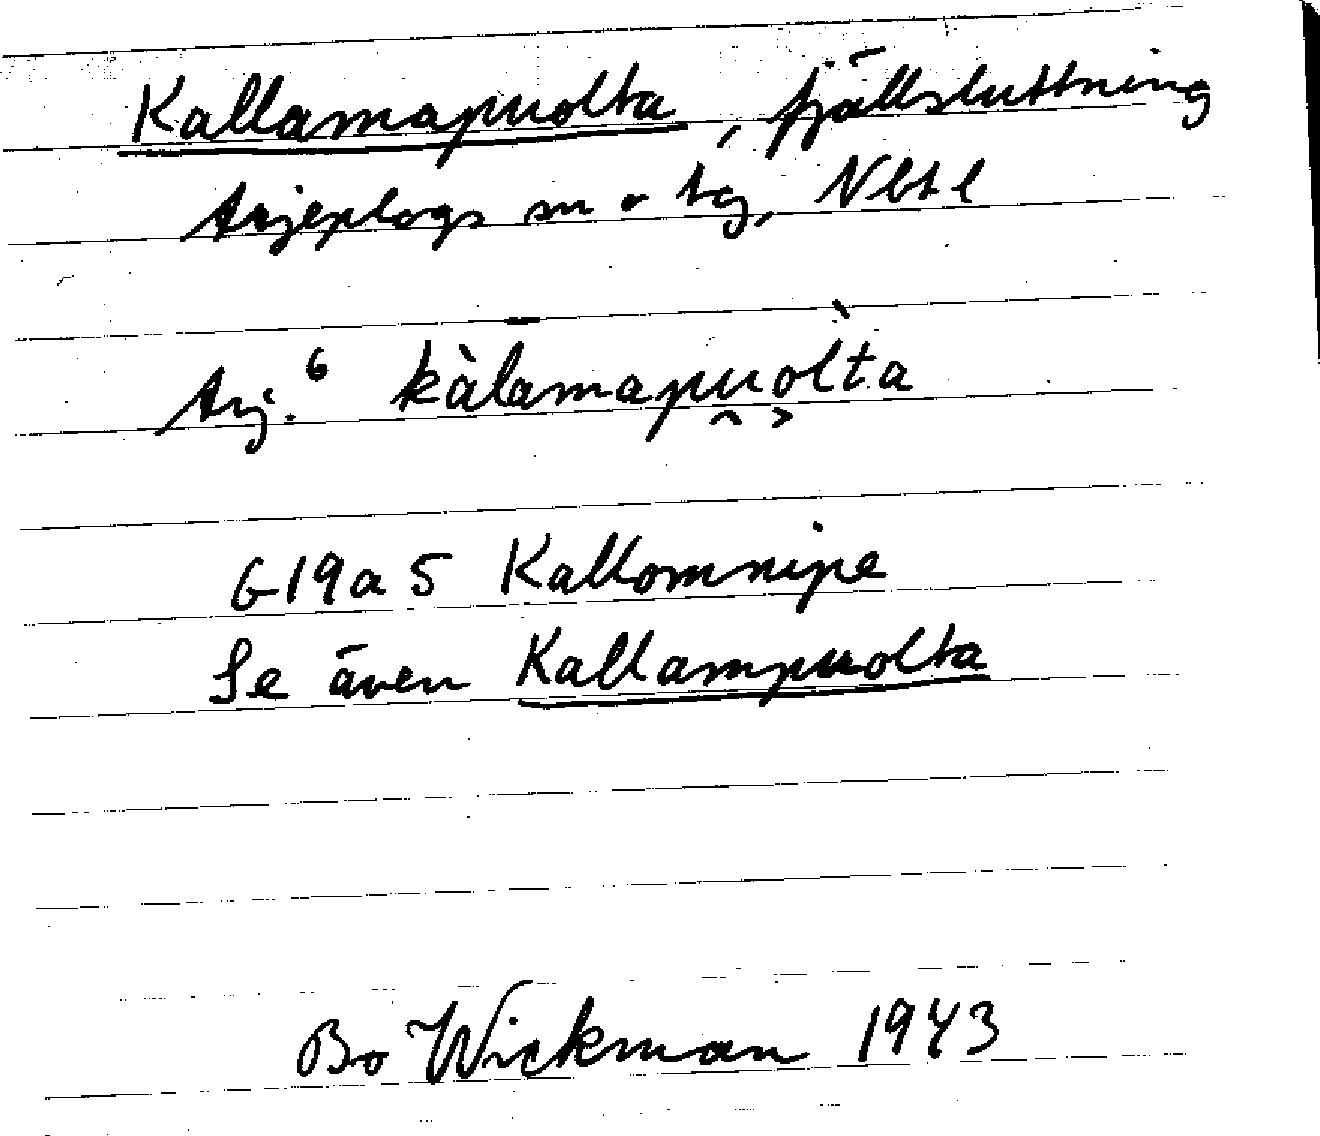 Kallamapuolta, fjällsluttning
Arjeplogs sn o tg, Nbtl
Arj.⁶ kàl̄amapu̯olt̀a
G19a5 Kallomnjpe
Se även Kallampuolta
Bo Wickman 1943